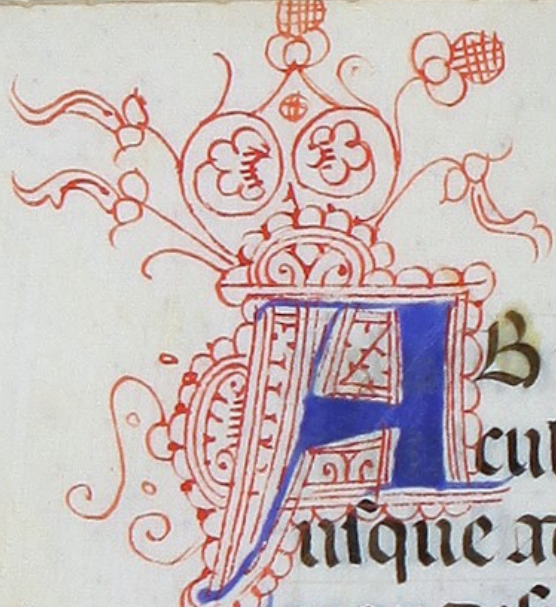 AB
cul
usque a